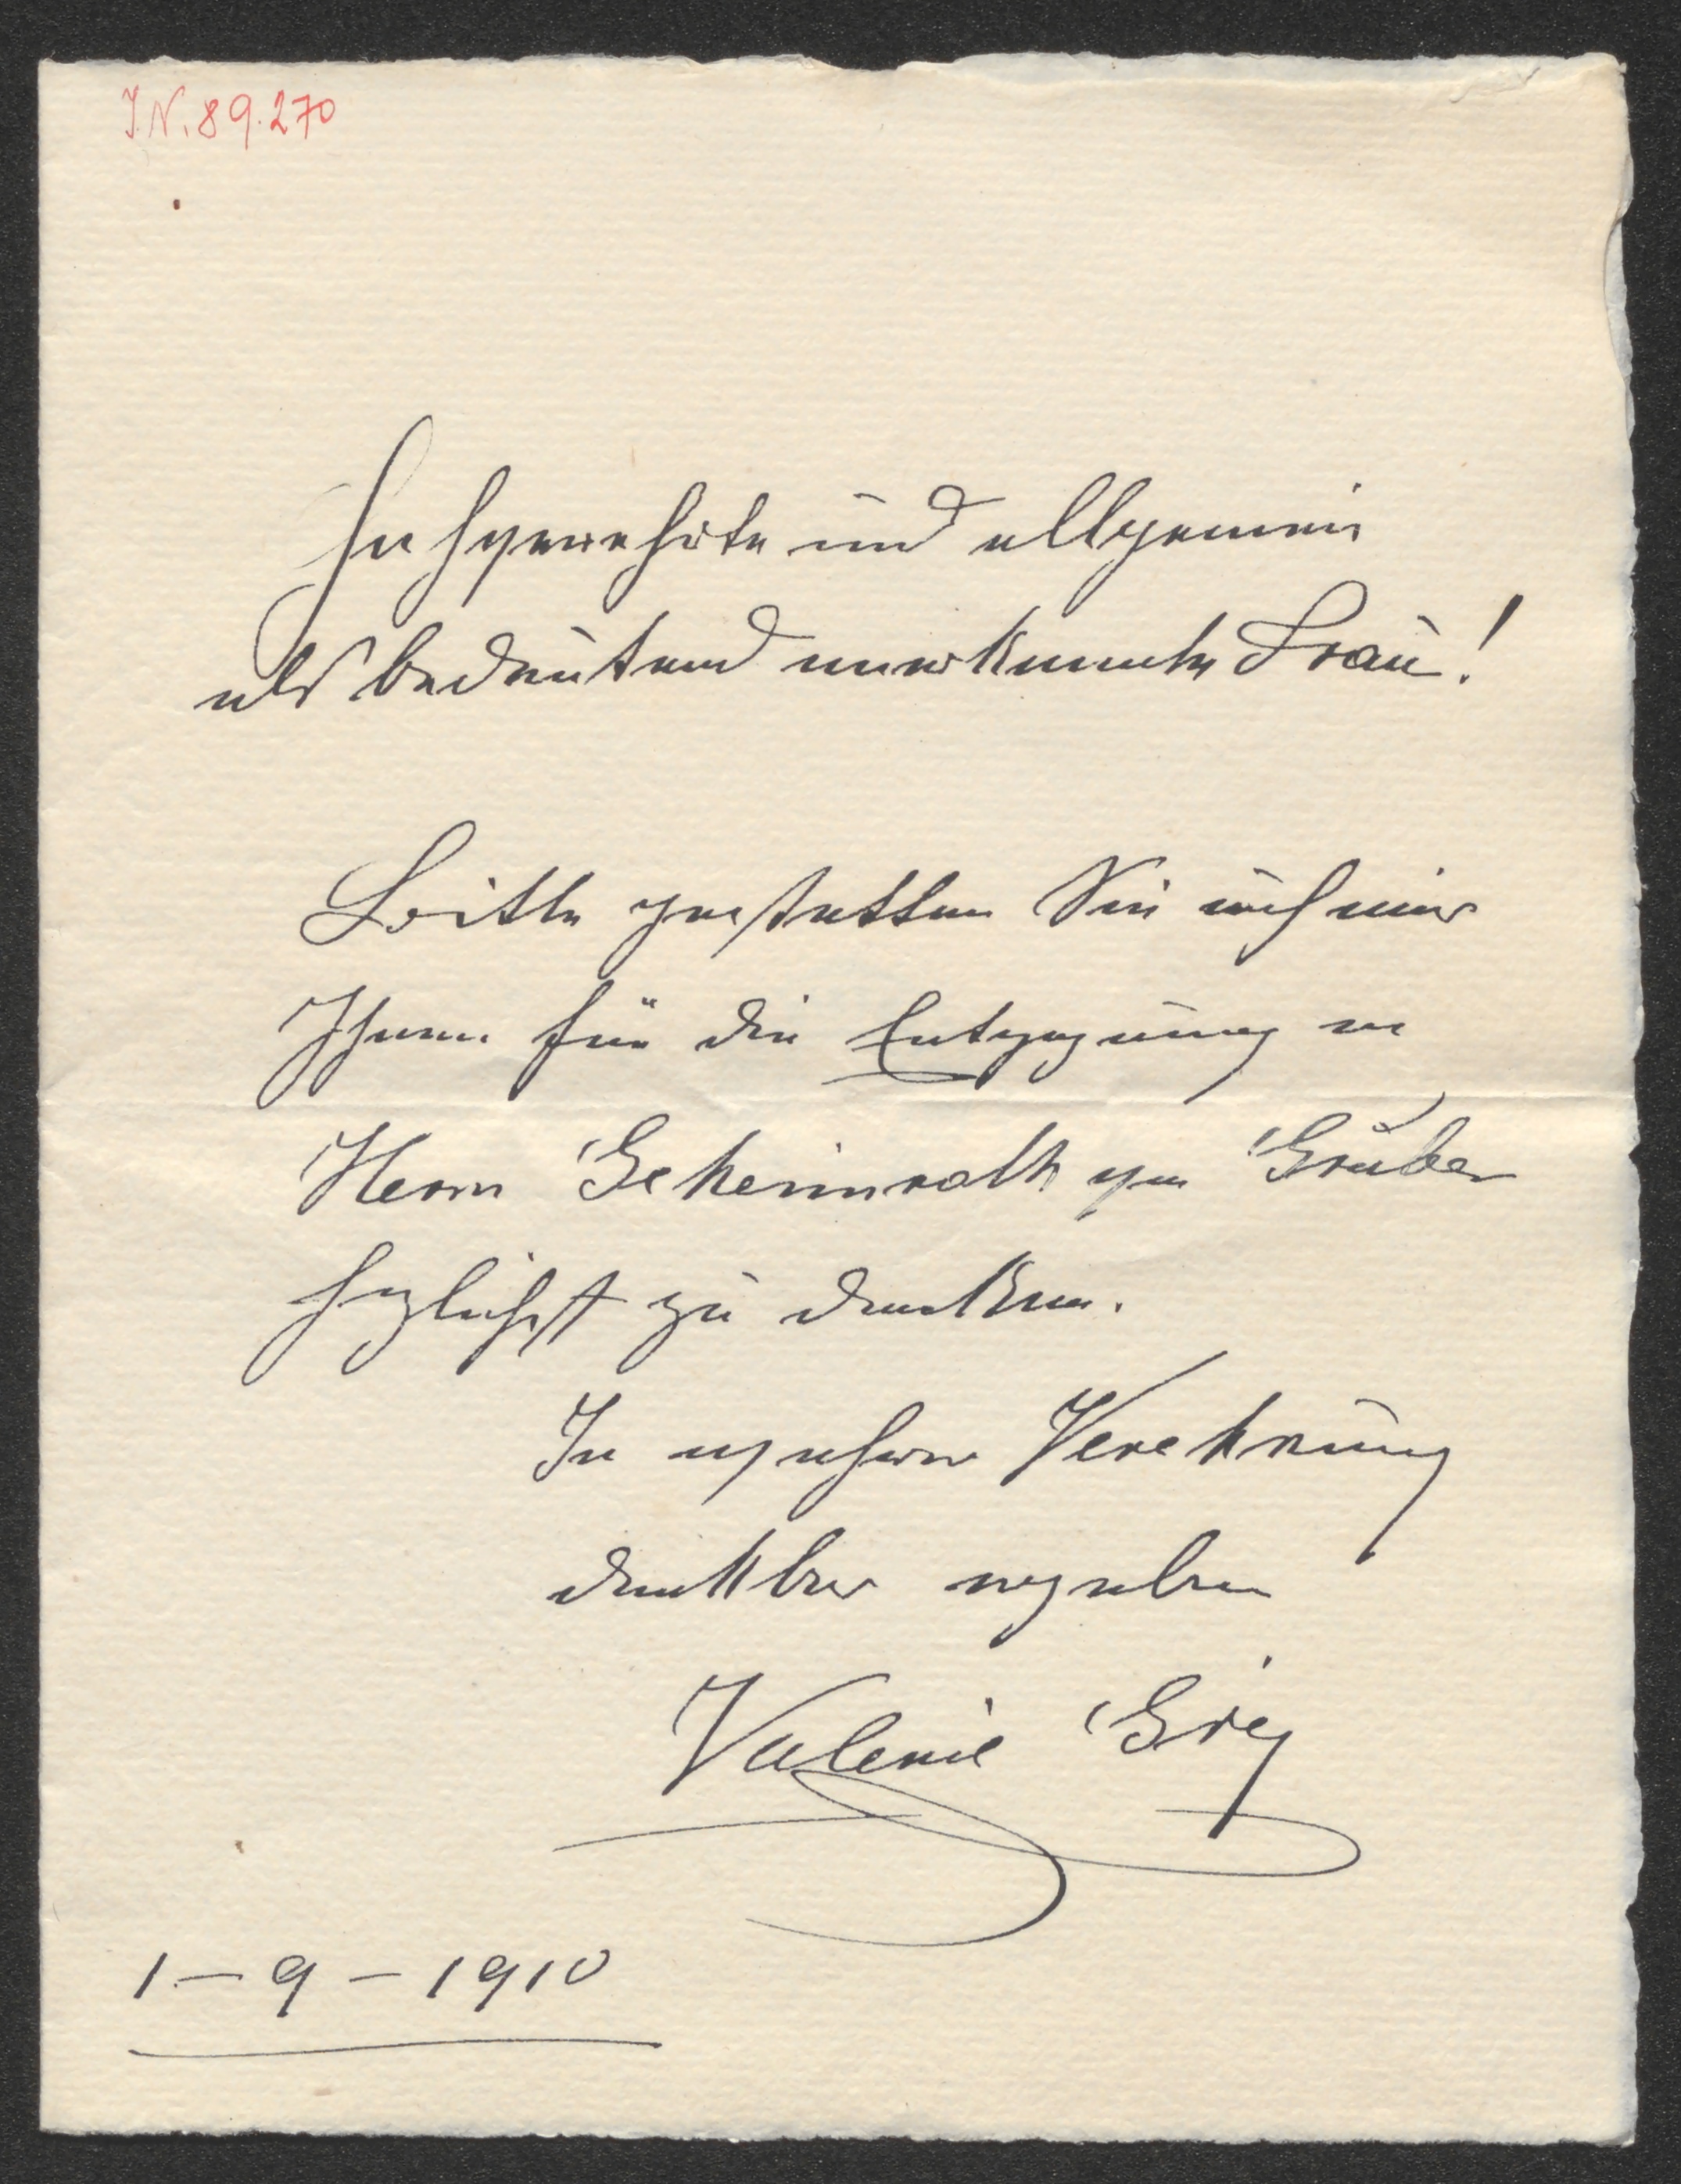 J.N. 89.270
Hochgeneehrte und allgemein
als bedeutend anerkannte Frau!
Bitte gestatten Sie auch mir
Ihnen für die Entgegnung an
Herrn Geheimrath von Gruber
herzlichst zu danken.
In wahrer Verehrung
dankbar ergeben
Valerie Grey
1-9-1910